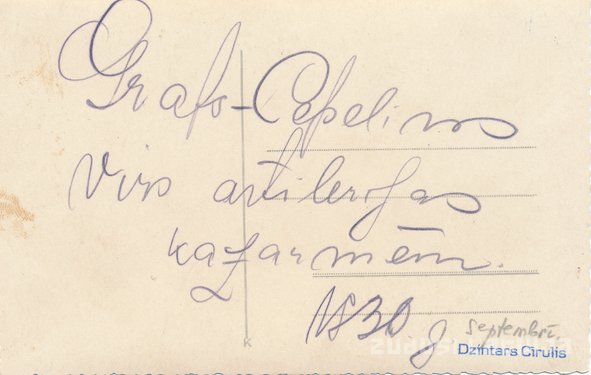 Grafs-Cepelins
virs artilerijas
kazarmēm.
1930 g septembrī.
Dzintars Cīrulis
K